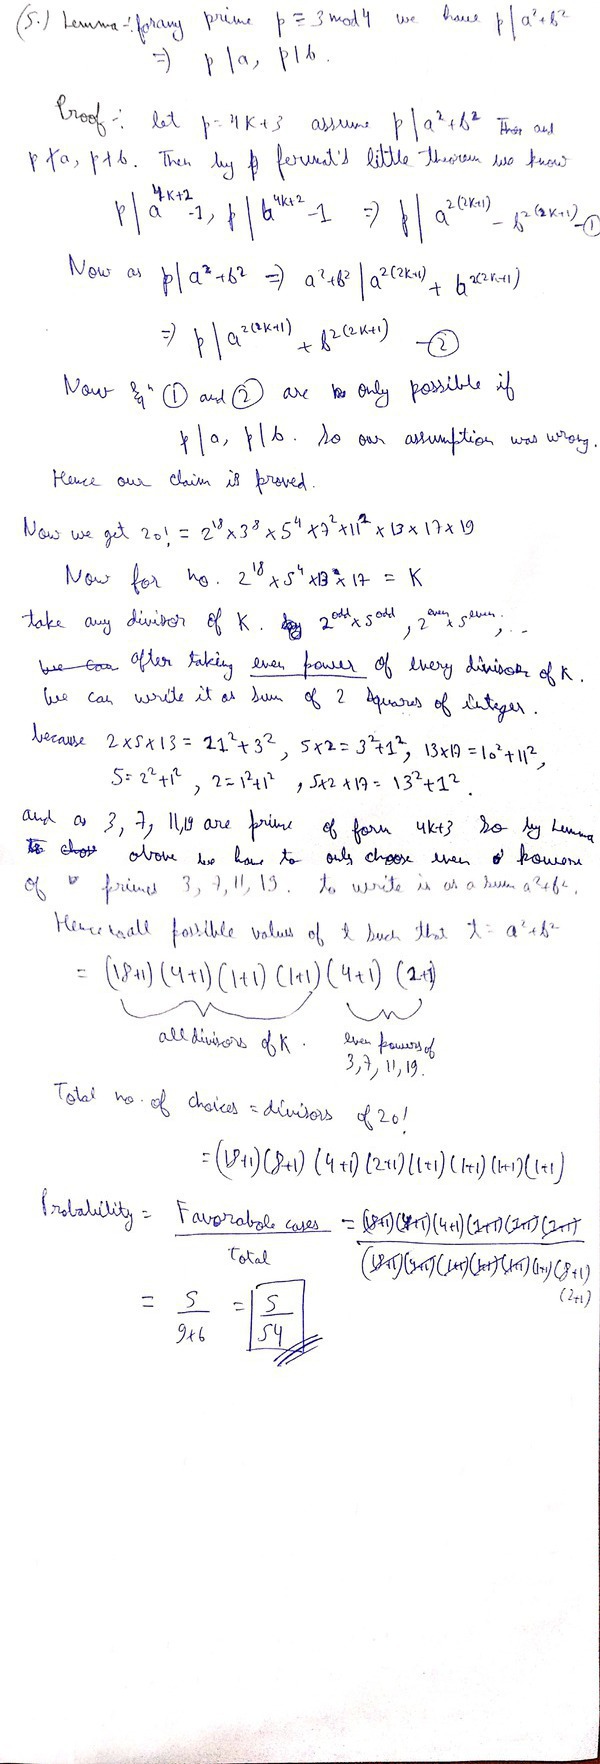 (5.) Lemma :- for any prime p ≡ 3 mod 4 we have p | a² + b²
⇒ p | a, p | b.
Proof :- let p = 4k+3 assume p | a² + b² and
p ∤ a, p ∤ b. Then by fermat's little theorem we know
p | a^{4k+2} - 1, p | b^{4k+2} - 1 ⇒ p | a^{2(2k+1)} - b^{2(2k+1)} - ①
Now as p | a² + b² ⇒ a² + b² | a^{2(2k+1)} + b^{2(2k+1)}
⇒ p | a^{2(2k+1)} + b^{2(2k+1)} - ②
Now eqⁿ ① and ② are only possible if
p | a, p | b. So our assumption was wrong.
Hence our claim is proved.
Now we get 20! = 2^{18} × 3^8 × 5^4 × 7^2 × 11^2 × 13 × 17 × 19
Now for no. 2^{18} × 5^4 × 13 × 17 = K
take any divisor of K. 2^{odd} × 5^{odd}, 2^{even} × 5^{even}, ...
after taking even power of every divisor of K.
We can write it as sum of 2 squares of integer.
because 2×5×13 = 11² + 3², 5×2 = 3² + 1², 13×17 = 10² + 11²,
5 = 2² + 1², 2 = 1² + 1², 5×2×17 = 13² + 1².
and as 3, 7, 11, 19 are prime of form 4k+3 So by Lemma
above we have to only choose even powers
of primes 3, 7, 11, 19. to write is as a sum a² + b².
Hence all possible values of t such that t = a² + b²
= (18+1) (4+1) (1+1) (1+1) (4+1) (2+1)
all divisors of K. even powers of
3, 7, 11, 19.
Total no. of choices = divisors of 20!
= (18+1) (8+1) (4+1) (2+1) (1+1) (1+1) (1+1) (1+1)
Probability = Favorabole cases = (18+1) (4+1) (4+1) (1+1) (1+1) (2+1)
Total (18+1) (4+1) (1+1) (1+1) (1+1) (1+1) (8+1)
(2+1)
= 5 = 5
9×6 54